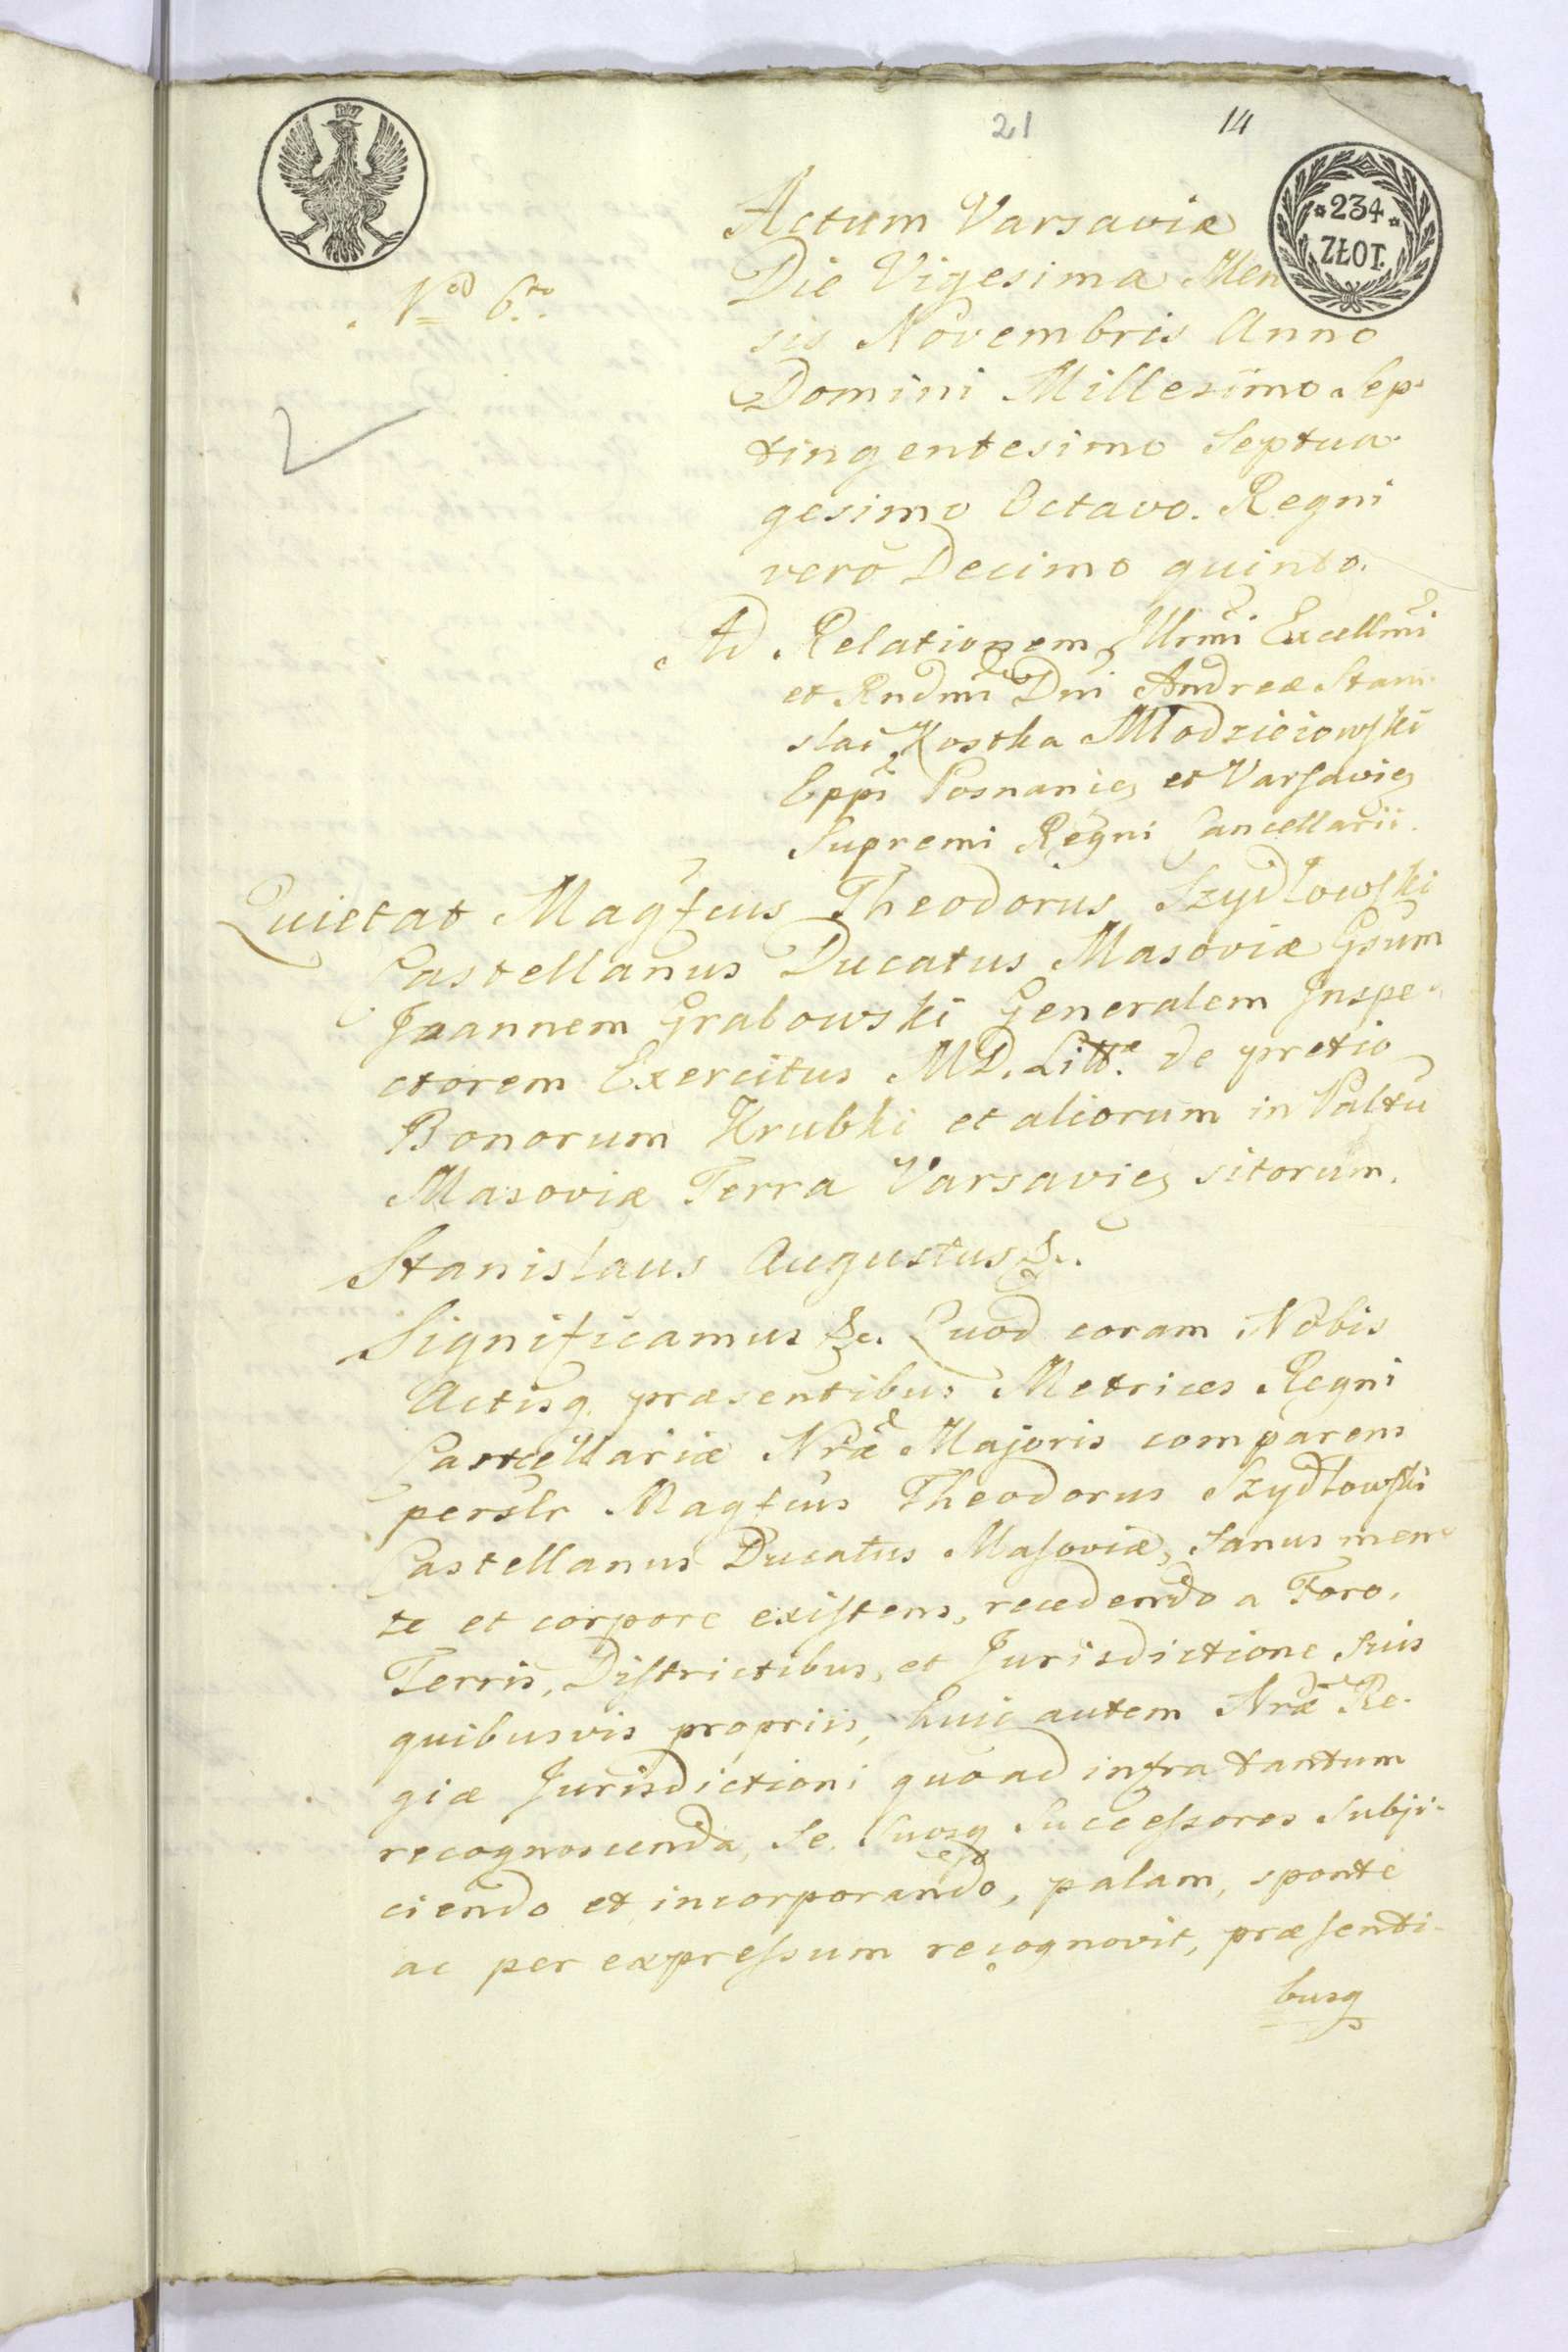 21 14
Actum Varsaviæ
* 234 *
ZŁOT.
Die Vigesima Men
Nrd 6to.
sis Novembris Anno
Domini Millesimo Sep-
tingentesimo Septua-
gesimo Octavo. Regni
verō Decimo quinto.
Ad Relationem Illrmi Excellmi
et Rndmi Dni Andreæ Stani-
slai Kostka Młodzieiowski
Eppi Posnanię et Varsavię
Supremi Regni Cancellarii.
Quietat Magfcus Theodorus Szydłowski
Castellanus Ducatus Masoviæ Gsum
Joannem Grabowski Generalem Inspe-
ctorem Exercitus M.D. Littæ de pretio
Bonorum Krubki et aliorum in Paltu
Masoviæ Terra Varsavię sitorum.
Stanislaus Augustus &c.
Significamus &c. Quod coram Nobis
Actisq præsentibus Metrices Regni
Cancellariæ Nræ Majoris comparens
perslr Magfcus Theodorus Szydłowski
Castellanus Ducatus Masoviæ, sanus men-
te et corpore existens, recedendo a Foro,
Terris, Districtibus, et Jurisdictione suis
quibusvis propriis, huic autem Nræ Re-
giæ Jurisdictioni quoad infra tantum
recognoscenda, se Suosq Successores subji-
ciendo et incorporando, palam, sponte
ac per expressum recognovit, præsenti-
busq